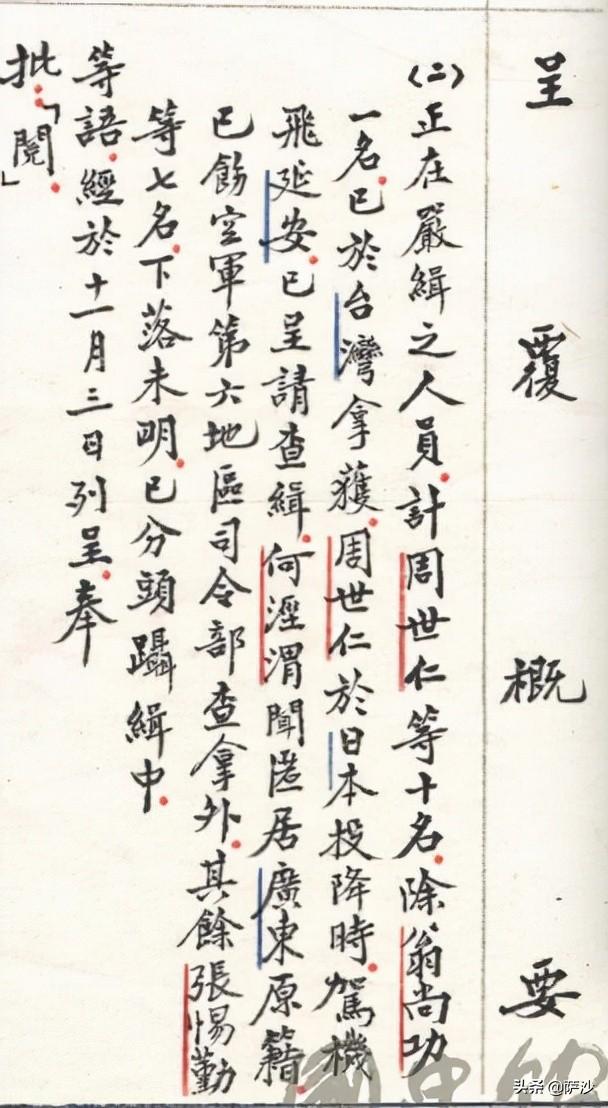 呈覆概要
(二)正在嚴緝之人員.計周世仁等十名.除翁尚功
一名.已於台灣拿獲.周世仁於日本投降時.駕機
飛延安.已呈請查緝.何溼渭聞匿居廣東原籍.
已飭空軍第六地區司令部查拿外.其餘張惕勤
等七名.下落未明.已分頭躡緝中.
等語.經於十一月三日列呈.奉
批.「閱」.
头条 @萨沙